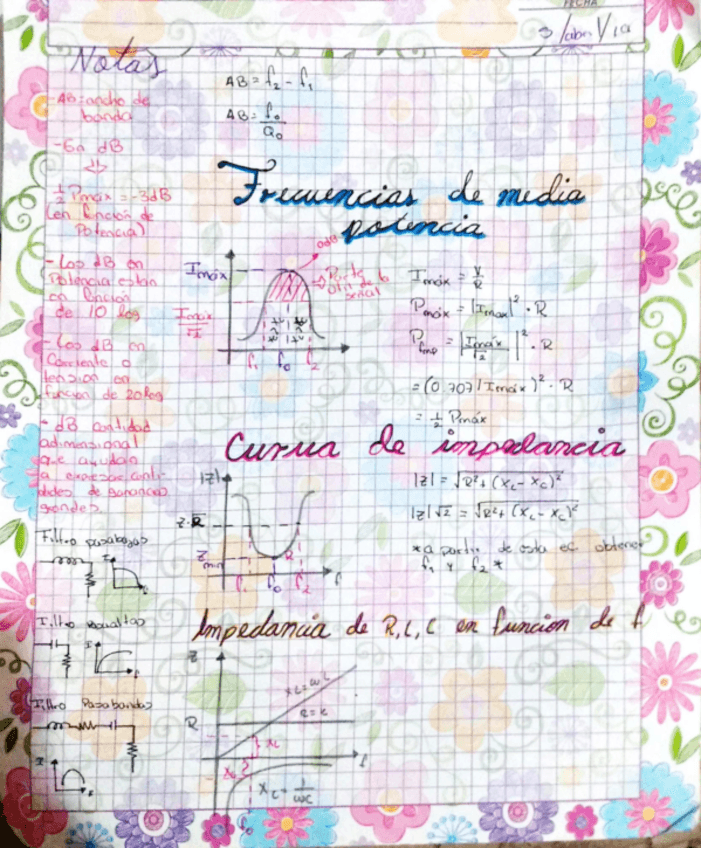 FECHA
Notas
- AB: ancho de
banda
- En dB
½ Pmáx = -3dB
(en función de
Potencia)
- Los dB en
Potencia están
en función
de 10 log
- Los dB en
Corriente o
tensión en
función de 20 log
- dB cantidad
adimensional
que ayudan
a expresar canti-
dades de ganancias
grandes.
Filtro pasabajas
I
f
Filtro pasaltas
I
f
Filtro Pasabandas
I
f
AB = f₂ - f₁
AB = f₀/Q₀
Frecuencias de media
potencia
Imáx
Imáx/√2
Parte
útil de la
señal
f₁ f₀ f₂
Imáx = V/R
Pmáx = |Imáx|² · R
Pfmp = |Imáx/√2|² · R
= (0.707 Imáx)² · R
= ½ Pmáx
Curva de impedancia
|Z|
√2·R
Zmin
R
f₁ f₀ f₂ f
|Z| = √R² + (XL - XC)²
|Z|√2 = √R² + (XL - XC)²
*a partir de esta ec. obtener
f₁ y f₂ *
Impedancia de R, L, C en función de f
Z
XL = ωL
R
R = k
XL
f
XC
XC = 1/ωC
f₀